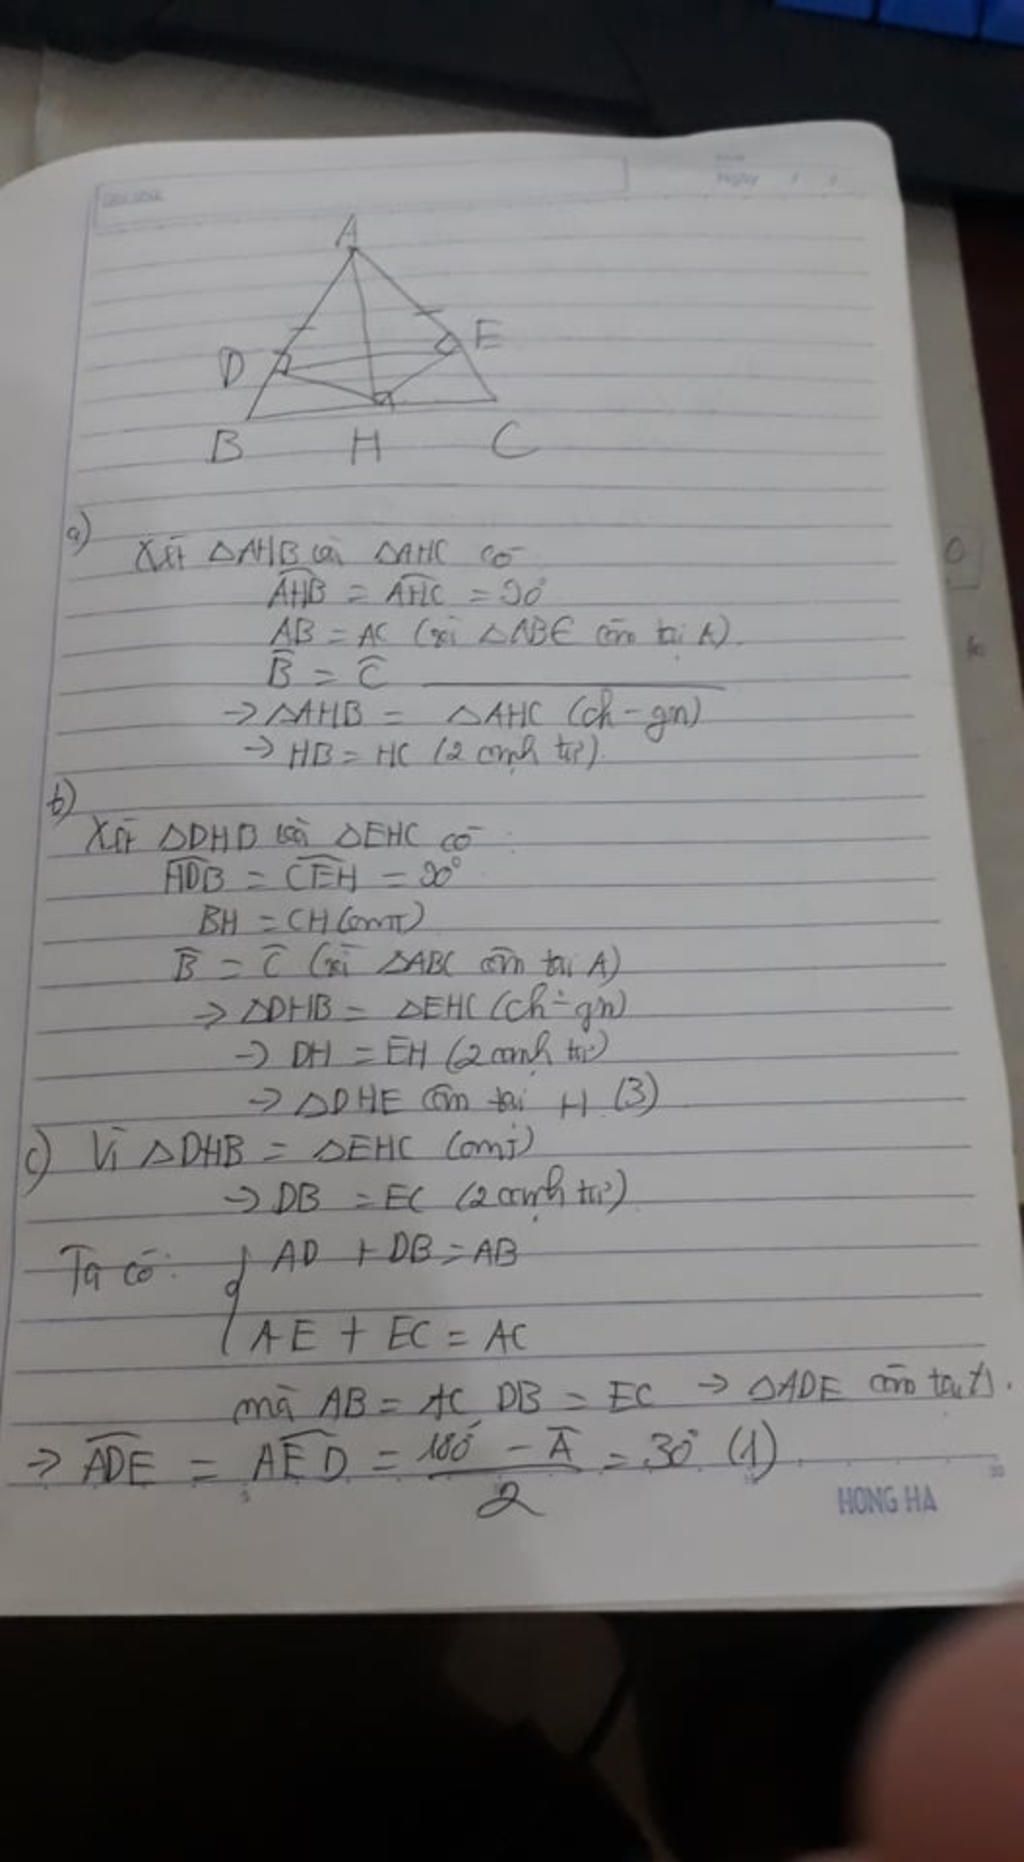 Ngày
A
D
E
B H C
a)
Xét △AHB và △AHC có
AHB = AHC = 90°
AB = AC (vì △ABC cân tại A).
B = C
→ △AHB = △AHC (ch - gn)
→ HB = HC (2 cạnh tư)
b)
Xét △DHB và △EHC có:
HDB = CEH = 90°
BH = CH (cmt)
B = C (vì △ABC cân tại A)
→ △DHB = △EHC (ch - gn)
→ DH = EH (2 cạnh tư)
→ △DHE cân tại H (3)
c) Vì △DHB = △EHC (cmt)
→ DB = EC (2 cạnh tư)
Ta có: { AD + DB = AB
AE + EC = AC
mà AB = AC, DB = EC → △ADE cân tại A.
→ ADE = AED = 180° - A / 2 = 30° (1)
HONG HA